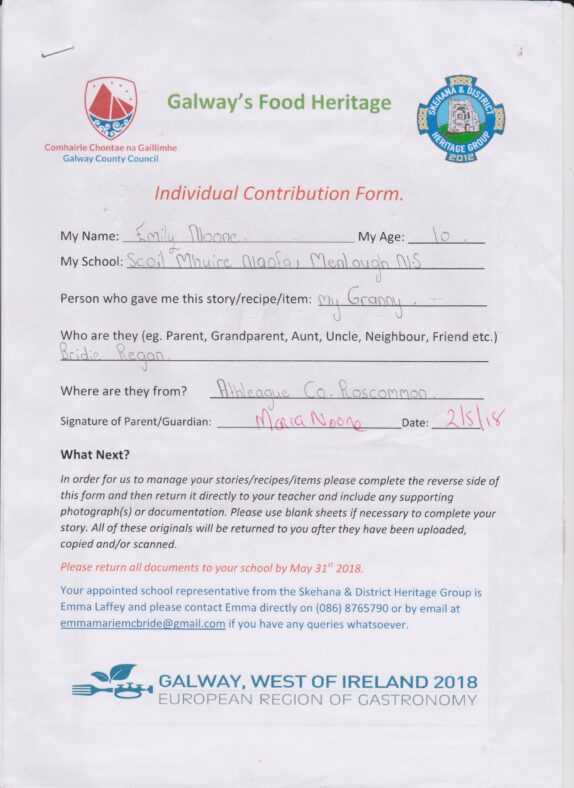 Galway's Food Heritage
Comhairle Chontae na Gaillimhe
Galway County Council
SKEHANA & DISTRICT
HERITAGE GROUP
2012
Individual Contribution Form.
My Name: Emily Noone. My Age: 10.
My School: Scoil Mhuire Naofa, Menlough N.S
Person who gave me this story/recipe/item: my Granny.
Who are they (eg. Parent, Grandparent, Aunt, Uncle, Neighbour, Friend etc.)
Bridie Regan.
Where are they from? Athleague Co. Roscommon.
Signature of Parent/Guardian: Maria Noone Date: 2/5/18
What Next?
In order for us to manage your stories/recipes/items please complete the reverse side of
this form and then return it directly to your teacher and include any supporting
photograph(s) or documentation. Please use blank sheets if necessary to complete your
story. All of these originals will be returned to you after they have been uploaded,
copied and/or scanned.
Please return all documents to your school by May 31st 2018.
Your appointed school representative from the Skehana & District Heritage Group is
Emma Laffey and please contact Emma directly on (086) 8765790 or by email at
emmamariemcbride@gmail.com if you have any queries whatsoever.
GALWAY, WEST OF IRELAND 2018
EUROPEAN REGION OF GASTRONOMY